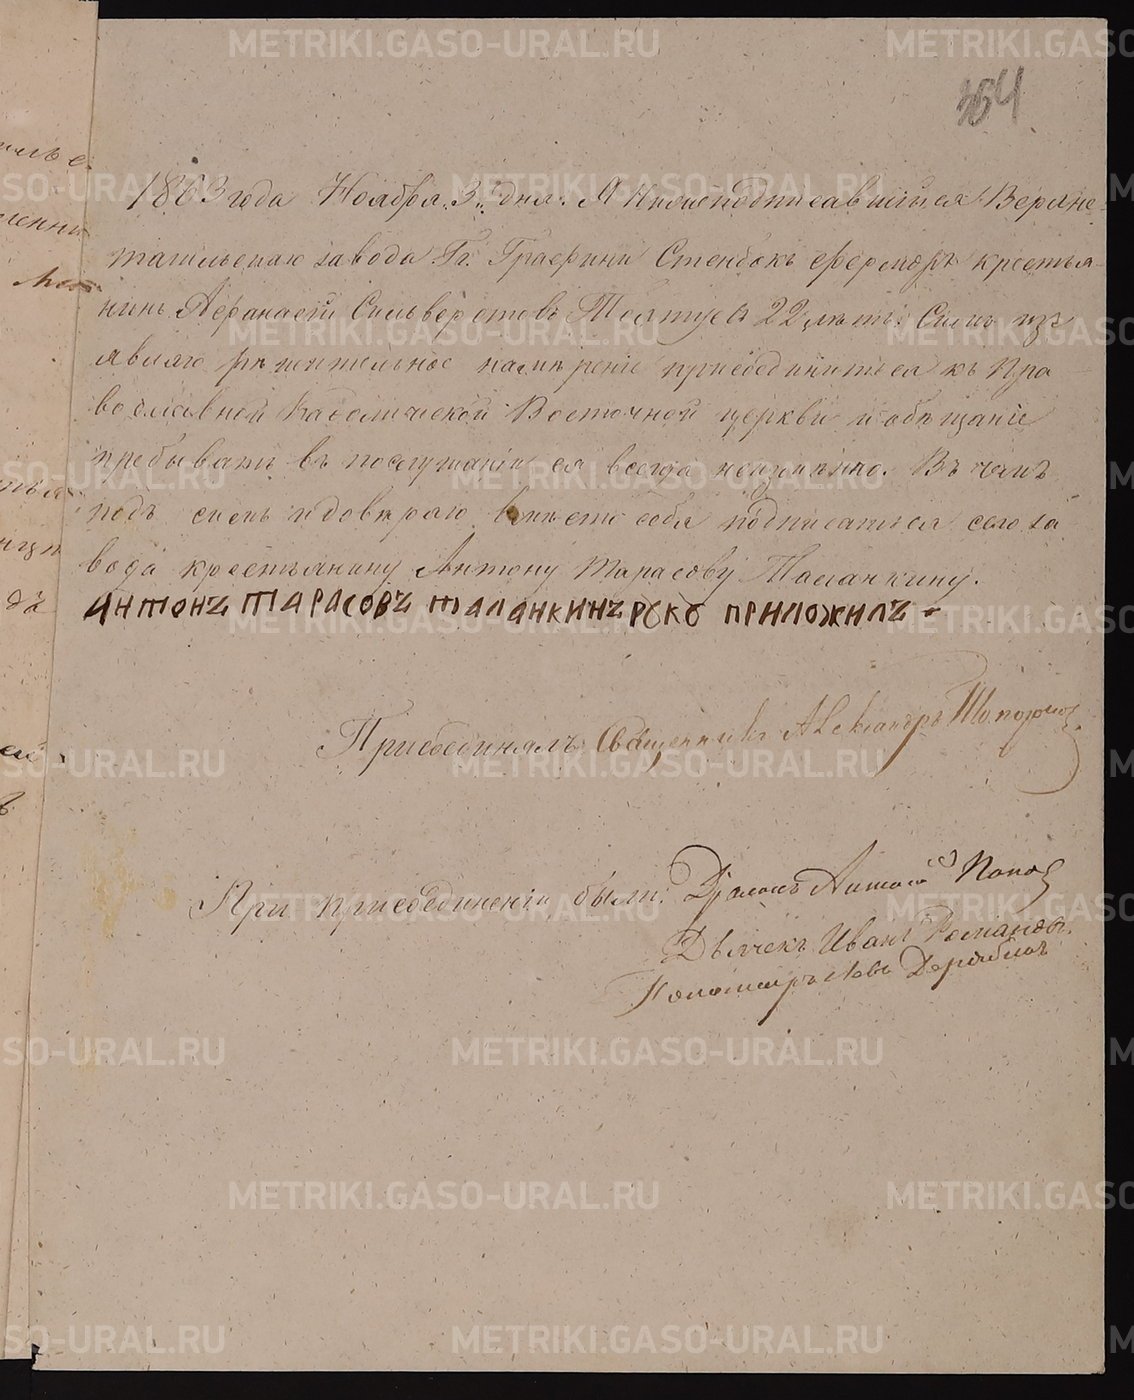 364
1863 года Ноября 3 дня. Я нижеподписавшійся Верхне-
тагильскаго завода Гг. Графини Стенбокъ Ферморъ крестья-
нинъ Афанасій Сильверстовъ 22 лѣтъ. Симъ изъ
являю рѣшительное намѣреніе присоединиться къ Пра
вославной Кафолической Восточной церкви и обѣщаніе
пребывать въ послушаніи ея всегда неизмѣнно. Въ чемъ
подъ симъ и довѣряю вмѣсто себя подписаться сего за
вода крестьянину Антону Тарасову Таланкину.
АНТОНЪ ТАРАСОВЪ ТАЛАНКИНЪ РУКУ ПРИЛОЖИЛЪ
Присоединялъ Священникъ Александръ Топорков
При присоединеніи были: Діаконъ Антоній Попов
Дьячекъ Иванъ Романовъ.
Пономарь Левъ Дерябинъ
METRIKI.GASO-URAL.RU